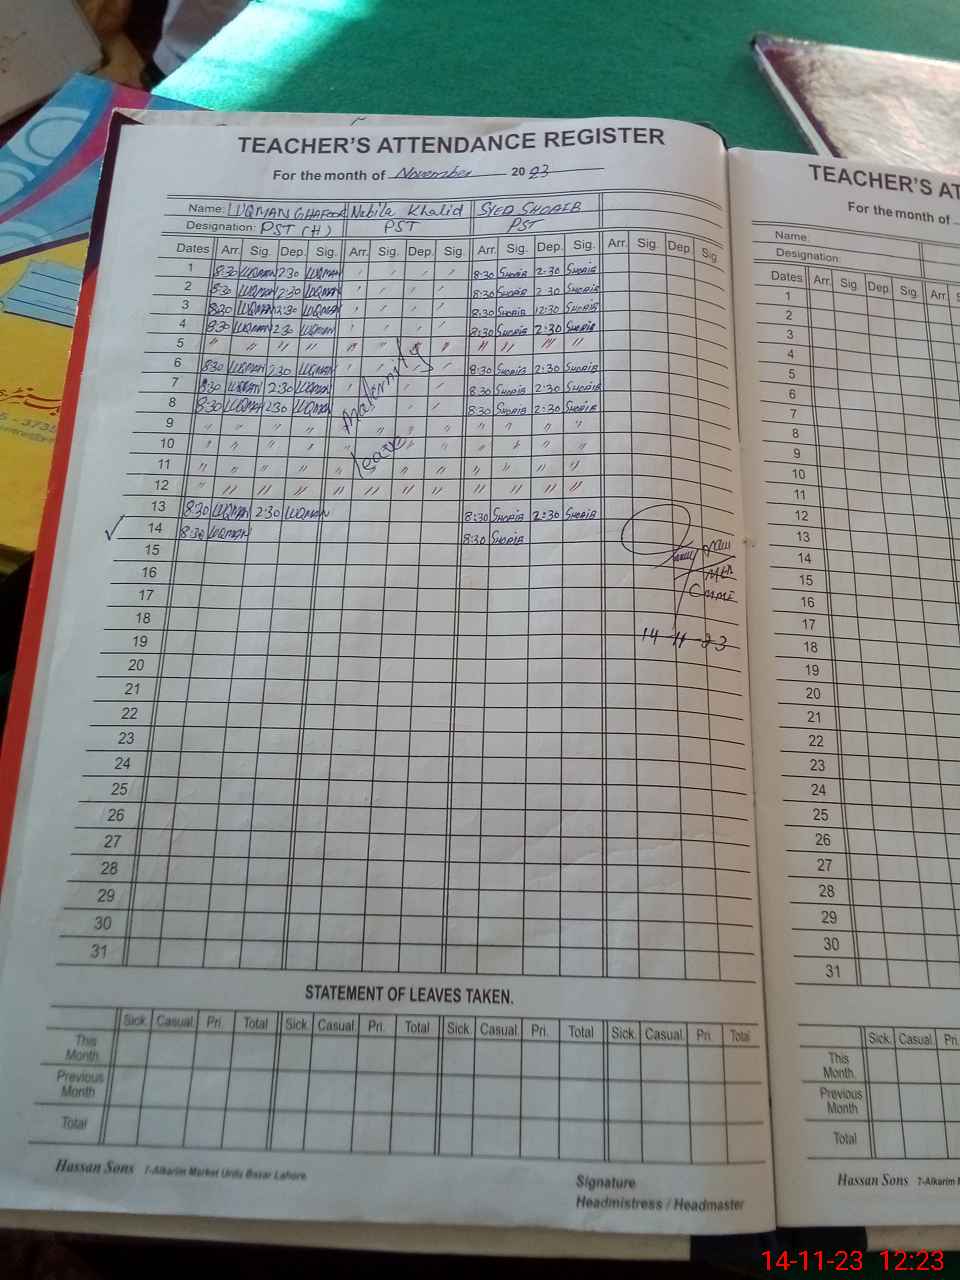 TEACHER'S ATTENDANCE REGISTER
For the month of November 2023
Name: LUQMAN GHAFOOR Nabila Khalid SYED SHOAIB
Designation: PST (H) PST PST
Dates Arr. Sig. Dep. Sig. Arr. Sig. Dep. Sig. Arr. Sig. Dep. Sig. Arr. Sig. Dep. Sig.
1 8:30 LUQMAN 2:30 LUQMAN ' ' ' ' 8:30 SHOAIB 2:30 SHOAIB
2 8:30 LUQMAN 2:30 LUQMAN ' ' ' ' 8:30 SHOAIB 2:30 SHOAIB
3 8:30 LUQMAN 12:30 LUQMAN ' ' ' ' 8:30 SHOAIB 12:30 SHOAIB
4 8:30 LUQMAN 2:30 LUQMAN ' ' ' ' 8:30 SHOAIB 2:30 SHOAIB
5 " " " " " " " " " " " "
6 8:30 LUQMAN 2:30 LUQMAN 8:30 SHOAIB 2:30 SHOAIB
7 8:30 LUQMAN 2:30 LUQMAN 8:30 SHOAIB 2:30 SHOAIB
8 8:30 LUQMAN 2:30 LUQMAN 8:30 SHOAIB 2:30 SHOAIB
Maternity
leave
9 " " " " " " " " " " " "
10 " " " " " " " " " " " "
11 " " " " " " " " " " " "
12 " " " " " " " " " " " "
13 8:30 LUQMAN 2:30 LUQMAN 8:30 SHOAIB 2:30 SHOAIB
14 8:30 LUQMAN 8:30 SHOAIB
15
16
17
18
14-11-23
19
20
21
22
23
24
25
26
27
28
29
30
31
STATEMENT OF LEAVES TAKEN.
Sick. Casual. Pri. Total Sick. Casual. Pri. Total Sick. Casual. Pri. Total Sick. Casual. Pri. Total
This Month.
Previous Month
Total
Hassan Sons 7-Alkarim Market Urdu Bazar Lahore
Signature
Headmistress / Headmaster
TEACHER'S AT
For the month of
Name:
Designation:
Dates Arr. Sig. Dep. Sig. Arr.
1
2
3
4
5
6
7
8
9
10
11
12
13
14
15
16
17
18
19
20
21
22
23
24
25
26
27
28
29
30
31
Sick. Casual. Pri.
This Month.
Previous Month
Total
Hassan Sons 7-Alkarim
14-11-23 12:23